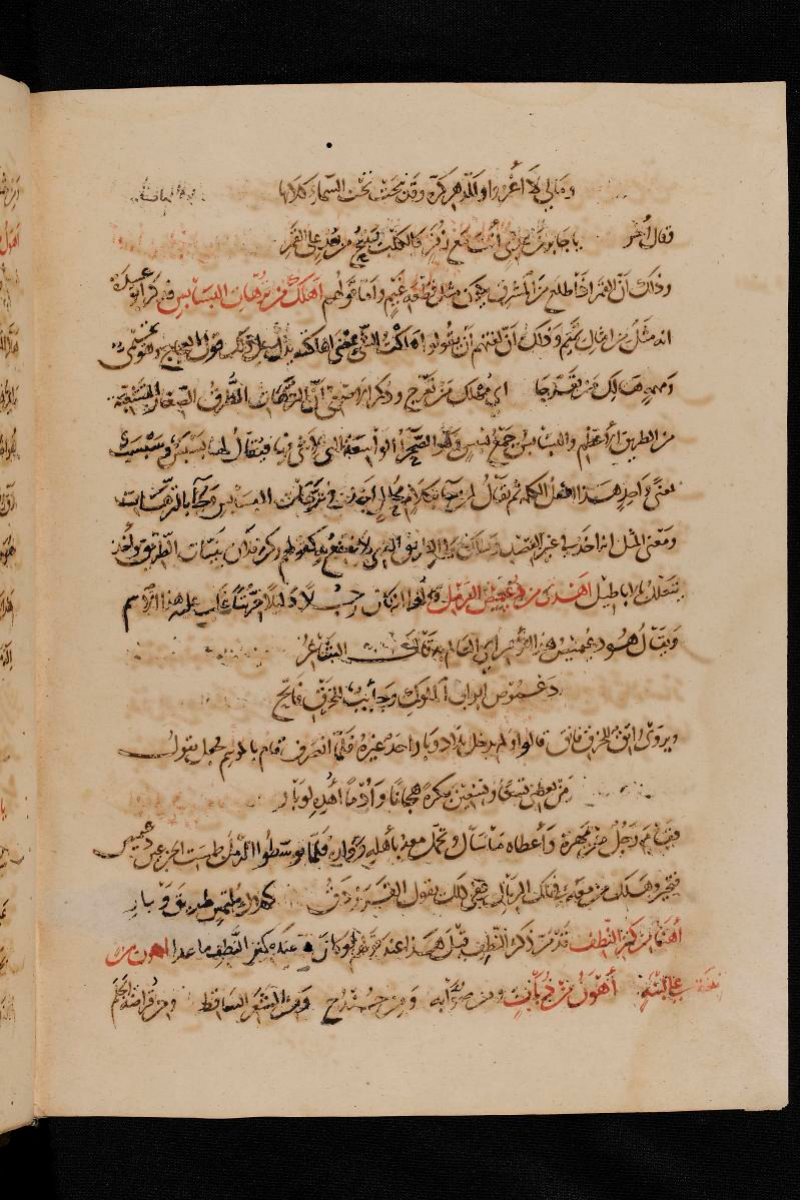 ومالي لا أغزوا وللدهر كرة وقد نبحت تحت السماء كلابها
فقال آخر يا جابر بن عدي أنت مع زفر كالكلب ينبح من بعد على القمر
وذلك أن القمر إذا طلع من المشرق يكون مثل قطعة غيم وأما قولهم أهلك من ترهات البسابس فذكر أبو عبيدة
انه مثل من امثال بني تميم وذلك أن لغتهم أن يقولوا هلكت الشيء بمعنى اهلكته يدل على ذلك قول العجاج وهو تميمي
ومهمه هالك من تعرجا أي مهلك من تعرج وذكر الاصمعي أن الترهات الطرق الصغار المتشعبة
من الطريق الأعظم والبسابس جمع بسبس وهو الصحراء الواسعة التي لا شيء فيها فيقال لها بسبس وسبسب
بمعنى واحد هذا اصل الكلمة ثم يقال لمن جاء بكلام محال اخذ في ترهات البسابس وجاء بالترهات
ومعنى المثل انه اخذ في غير القصد وسلك في الطريق الذي لا ينتفع به كقولهم ركب فلان بنيات الطريق وأخذ
يتعلل بالاباطيل أهدى من دعيميص الرمل قالوا انه كان رجلا دليلا خريتا غلب عليه هذا الاسم
ويقال هو دعيميص هذا الأمر أي العالم به قال الشاعر
دعموص ابواب الملوك وجائب للخرق فاتح
ويروى راتق للخرق فاتق قالوا ولم يدخل بلاد وبار احد غيره فلما انصرف قام بالموسم فجعل يقول
من يعطني تسعا وتسعين بكرة هجانا وأدما أهده لوبار
فقام رجل من مهرة وأعطاه ما سأل وتحمل معه بأهله وولده فلما توسطوا الرمل طمست الجن عين دعيميص
فتحير وهلك من معه في تلك الرمال ففي ذلك يقول الفرزدق كهلاك ملتمس طريق وبار
أهنأ من كنز النطف قد مر ذكر النطف قبل هذا عند قولهم لو كان عنده كنز النطف ما عدا أهون من
على أهون من ذباب ومن صوابة ومن حندج ومن الشعر الساقط ومن قراضة الجلم